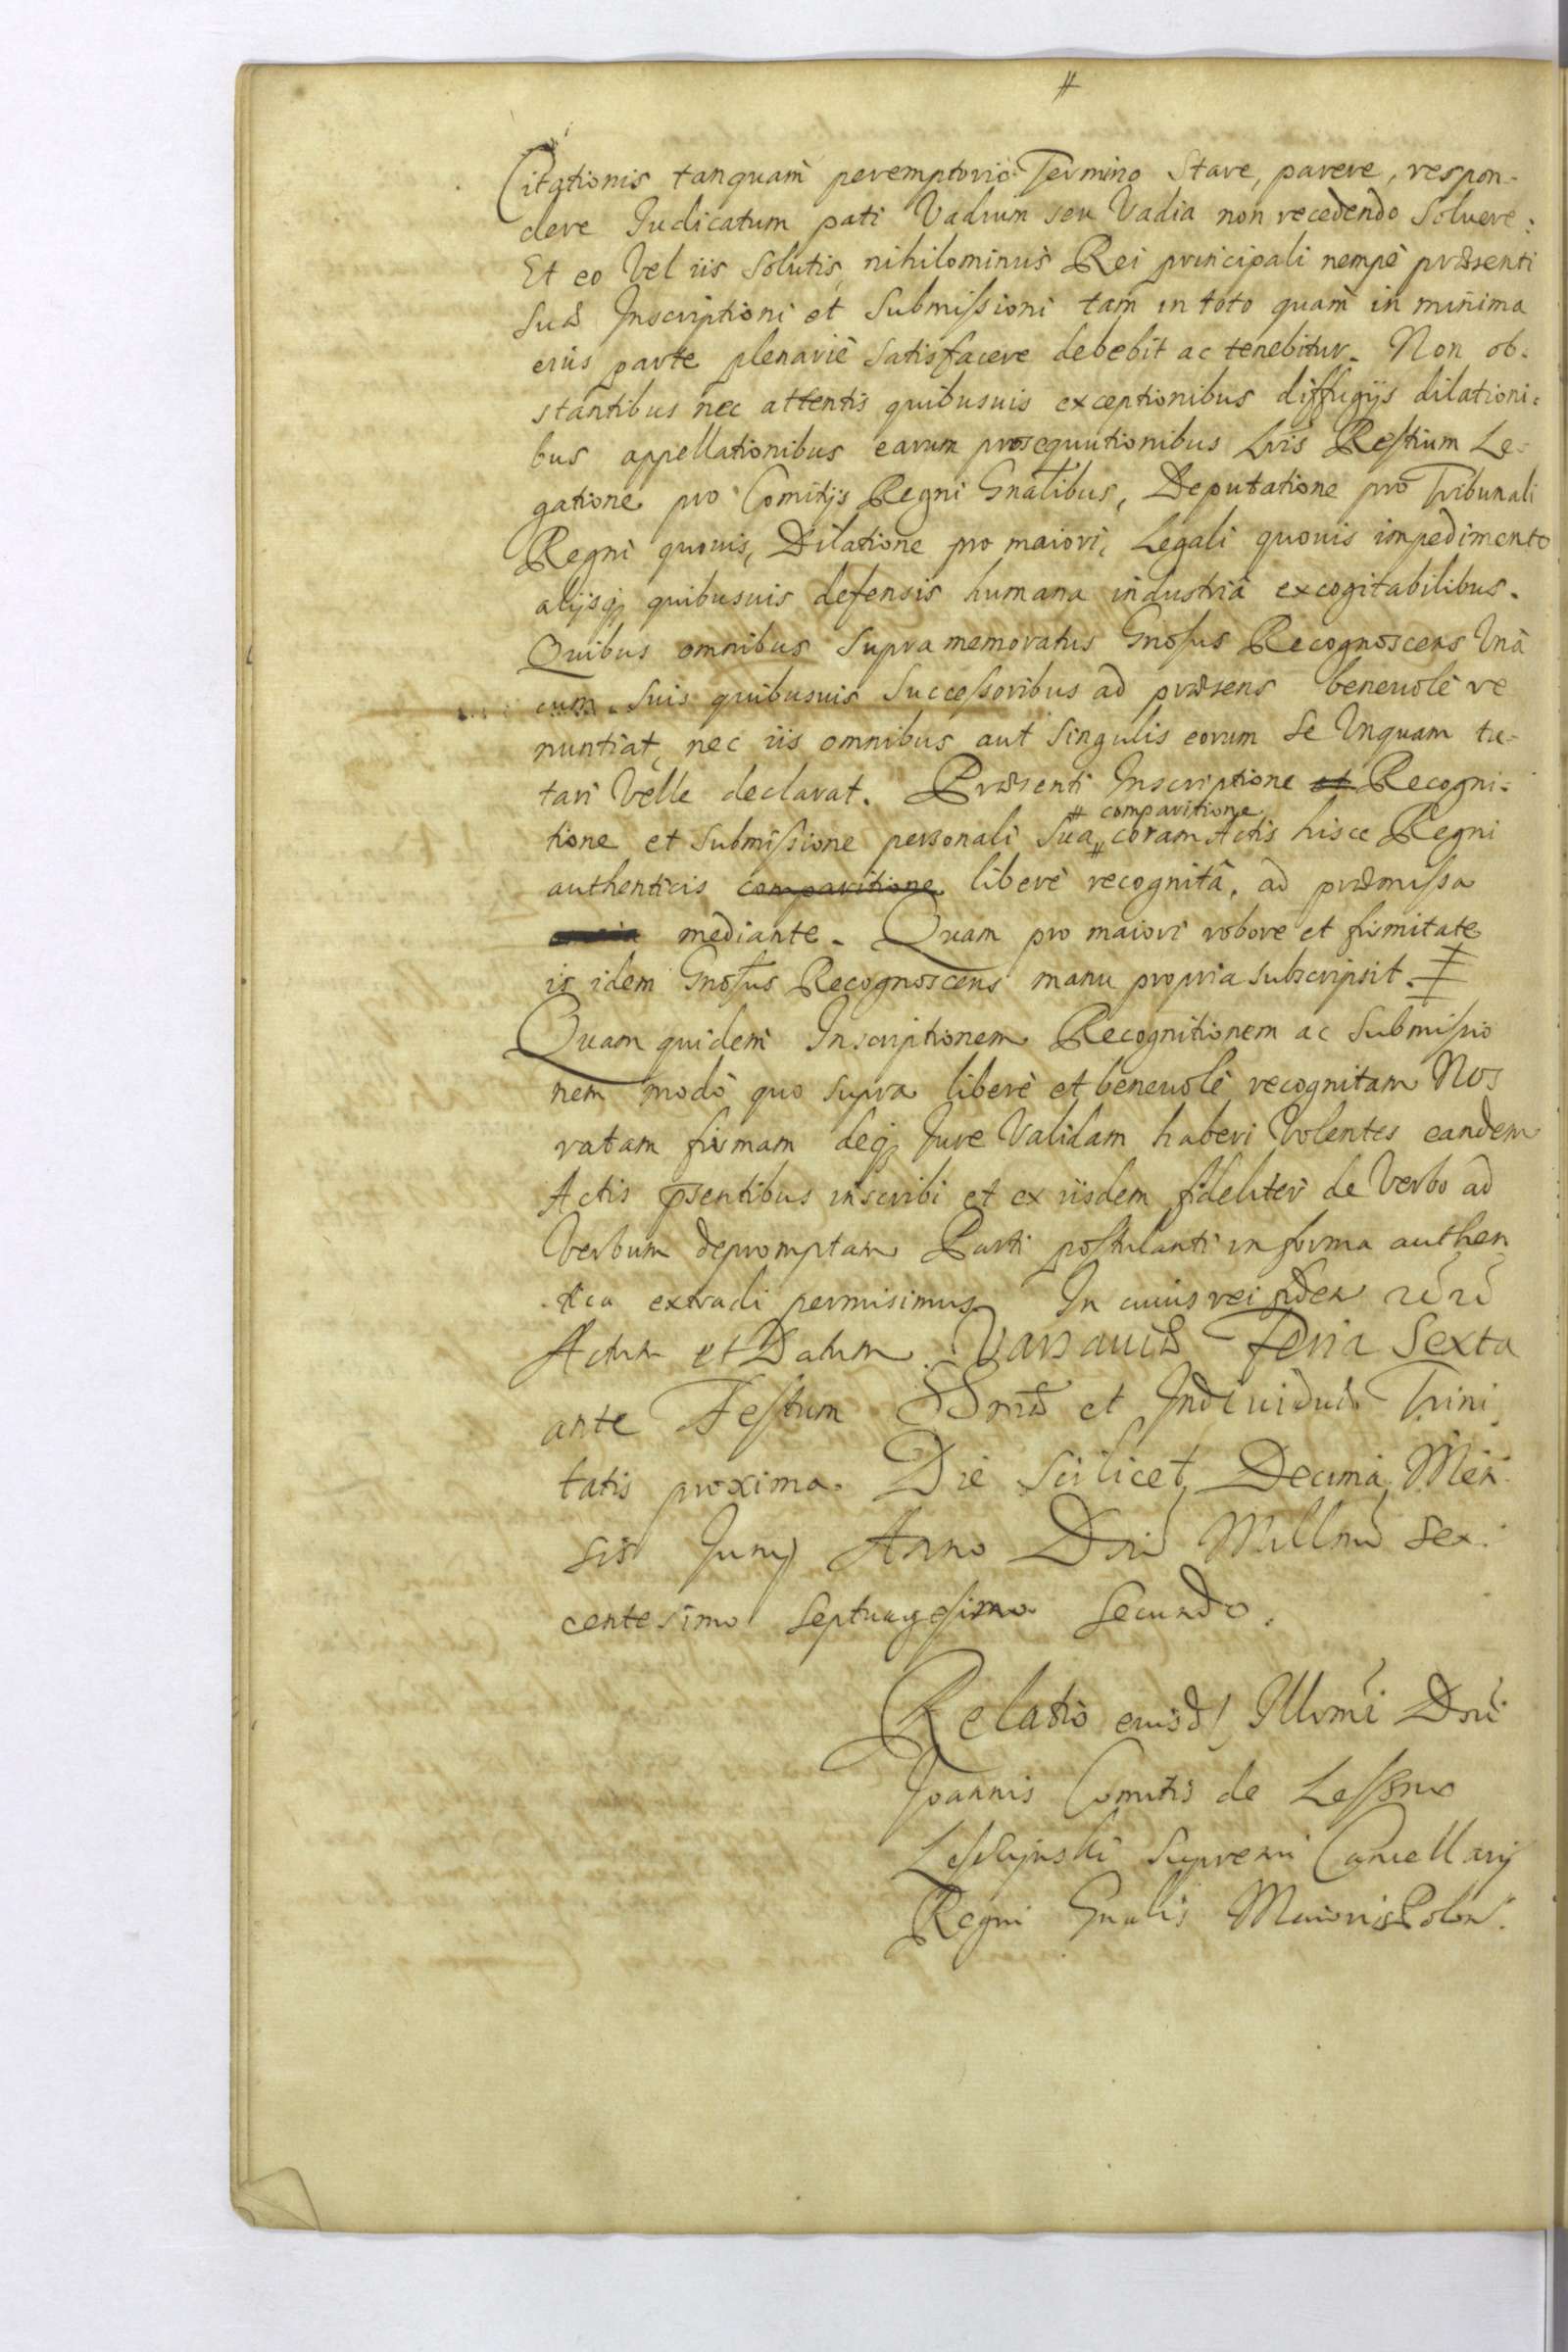 #
Citationis tanquam peremptorio Termino Stare, parere, respon-
dere Judicatum pati Vadium seu Vadia non recedendo Soluere:
Et eo Vel iis Solutis, nihilominus Rei principali nempè præsenti
Suæ Inscriptioni et Submissioni tam in toto quam in minima
eius parte plenariè Satisfacere debebit ac tenebitur. Non ob-
stantibus nec attentis quibusuis exceptionibus diffugijs dilationi-
bus appellationibus earum prosequutionibus Lris Restium Le-
gatione pro Comitijs Regni Gnalibus, Deputatione pro Tribunali
Regni quouis, Dilatione pro maiori, Legali quouis impedimento
alijsq; quibusuis defensis humana industriâ excogitabilibus.
Quibus omnibus Supra memoratus Gnosus Recognoscens Unà
cum suis quibusuis Successoribus ad præsens beneuolè re
nuntiat, nec iis omnibus aut Singulis eorum Se Unquam tu-
tari Velle declarat. Præsenti Inscriptione et Recogni-
# comparitione
tione et Submissione personali Sua # coram Actis hisce Regni
authenticis comparitione liberè recognitâ, ad præmissa
mediante. Quam pro maiori robore et firmitate
is idem Gnosus Recognoscens manu propria subscripsit. #
Quam quidem Inscriptionem Recognitionem ac Submissio
nem modò quo supra liberè et beneuolè recognitam Nos
ratam firmam deq; Jure Validam haberi Volentes eandem
Actis psentibus inscribi et ex iisdem fideliter de Verbo ad
Verbum depromptam Parti postulanti in forma authen
tica extradi permisimus. In cuius rei fidem
Actum et Datum Varsauiæ Feria Sexta
ante Festum SSmæ et Indiuiduæ Trini
tatis proxima. Die Scilicet Decima Men
sis Junij Anno Dni Millmo Sex-
centesimo Septuagesimo Secundo.
Relatio eiusd Illrmi Dni
Joannis Comitis de Leszno
Leszczynski Supremi Cancellarij
Regni Gnalis Maioris Polon.